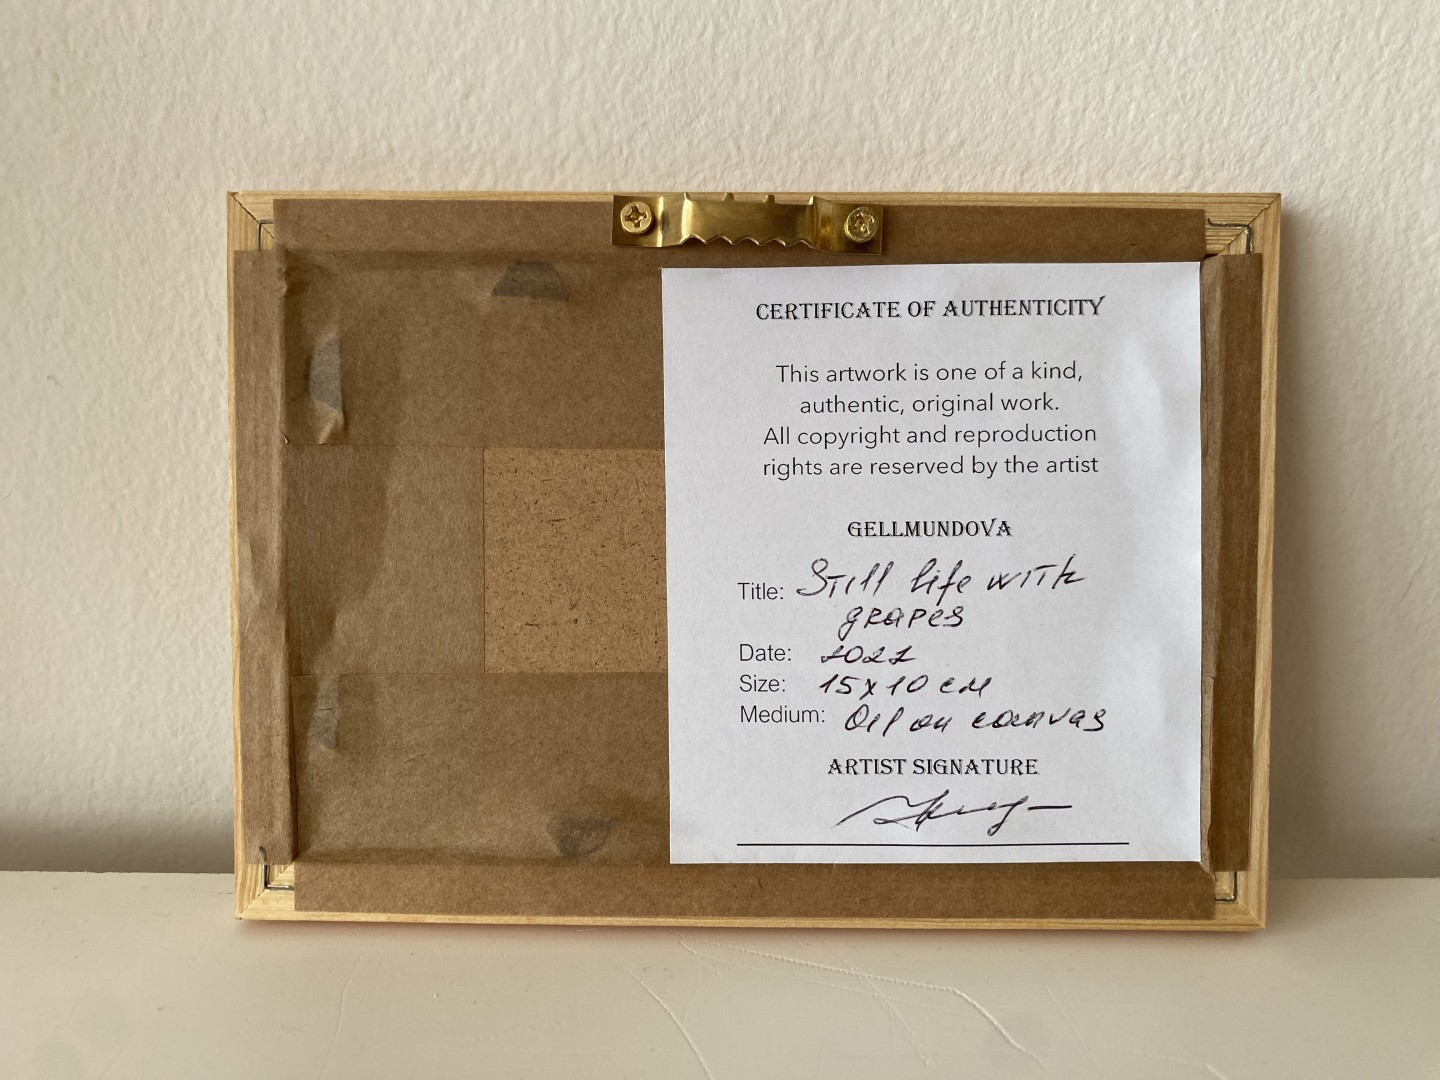 CERTIFICATE OF AUTHENTICITY
This artwork is one of a kind,
authentic, original work.
All copyright and reproduction
rights are reserved by the artist
GELLMUNDOVA
Title: Still life with
grapes
Date: 2021
Size: 15x10 cm
Medium: Oil on canvas
ARTIST SIGNATURE